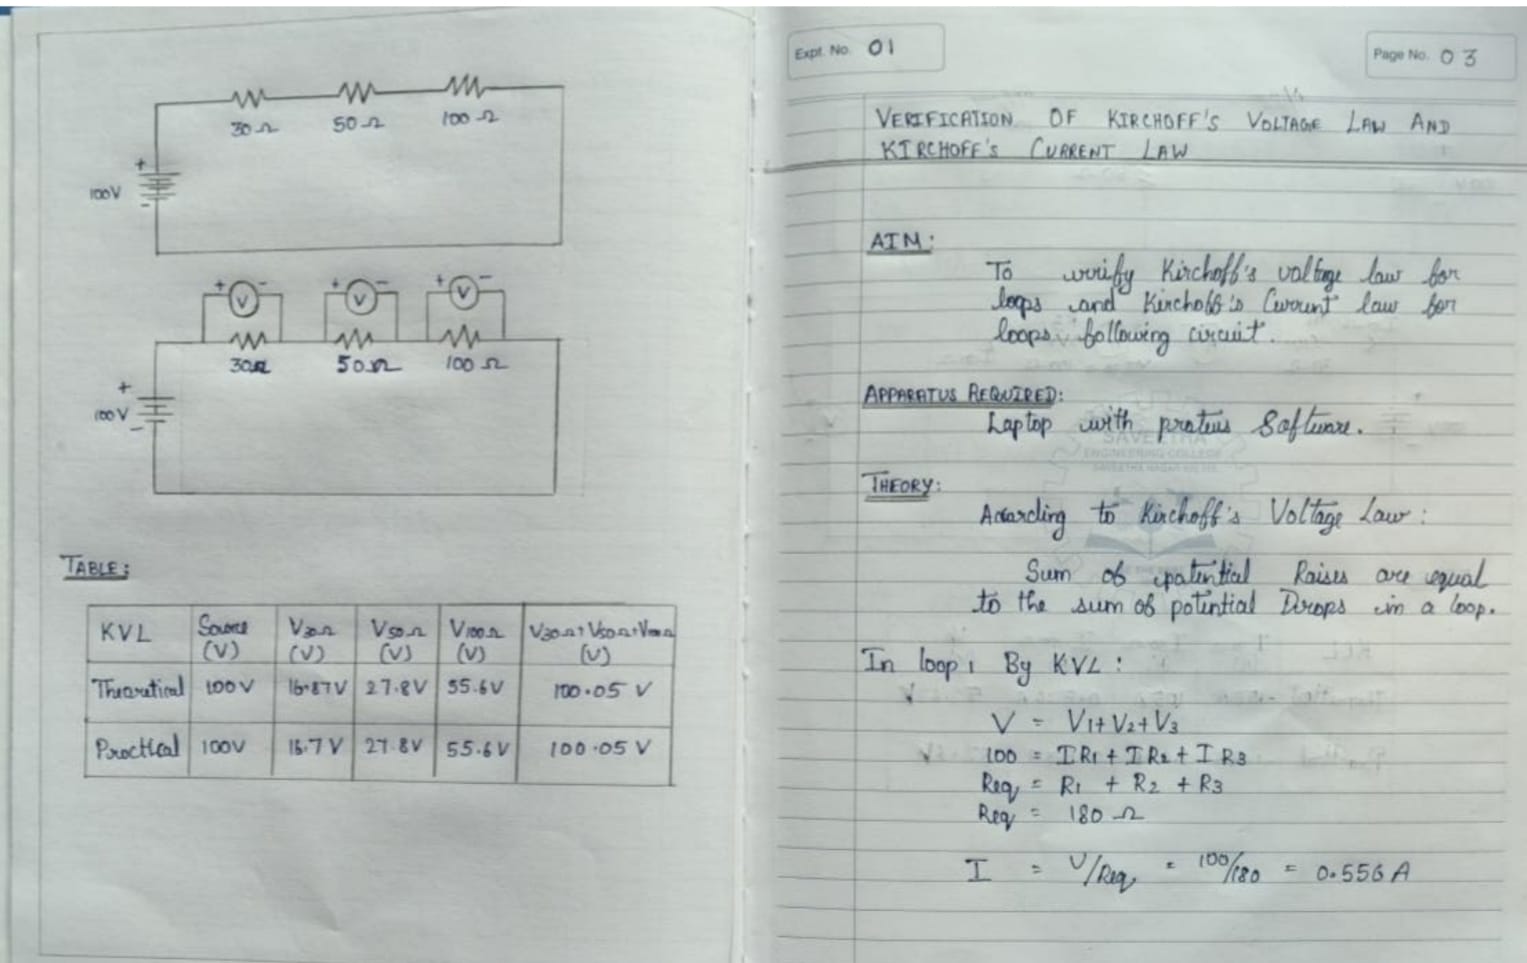 30Ω 50Ω 100Ω
+
100V
-
+ - + - + -
V V V
30Ω 50Ω 100Ω
+
100V
-
TABLE:
KVL Source (V) V30Ω (V) V50Ω (V) V100Ω (V) V30Ω+V50Ω+V100Ω (V)
Theoretical 100V 16.87V 27.8V 55.6V 100.05 V
Practical 100V 16.7V 27.8V 55.6V 100.05 V
Expt. No. 01
Page No. 03
VERIFICATION OF KIRCHOFF'S VOLTAGE LAW AND
KIRCHOFF'S CURRENT LAW
AIM:
To verify Kirchoff's voltage law for
loops and Kirchoff's Current law for
loops following circuit.
APPARATUS REQUIRED:
Laptop with proteus Software.
SAVEETHA
ENGINEERING COLLEGE
THEORY:
According to Kirchoff's Voltage Law:
Sum of potential Raises are equal
to the sum of potential Drops in a loop.
In loop 1 By KVL:
V = V1+V2+V3
100 = IR1 + IR2 + IR3
Req = R1 + R2 + R3
Req = 180 Ω
I = V/Req = 100/180 = 0.556 A